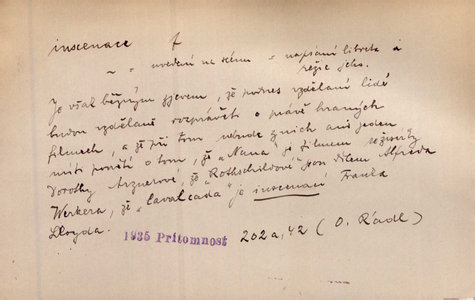 inscenace f
~ = uvedení na scénu = napsání libreta a
režie jeho.
Je však běžným zjevem, že podnes vzdělaní lidé
budou vzdělaně rozprávěti o právě hraných
filmech, a že při tom nebude z nich ani jeden
míti ponětí o tom, že „Nana" je filmem režisérky
Dorothy Arznerové, že „Rothschildové" jsou dílem Alfreda
Werkera, že „Cavalcada" je inscenací Franka
Lloyda.
1935 Přítomnost 202a,42 (O. Rádl)